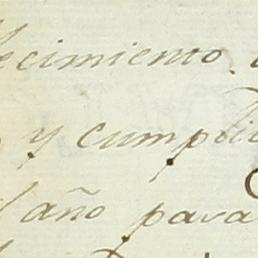 ecimiento
y cumpli
año para